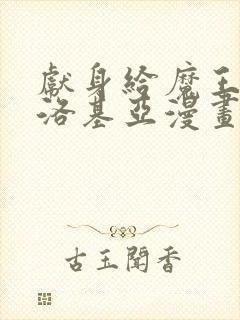 獻身給魔王
洛基亞漫畫
古玉聞香